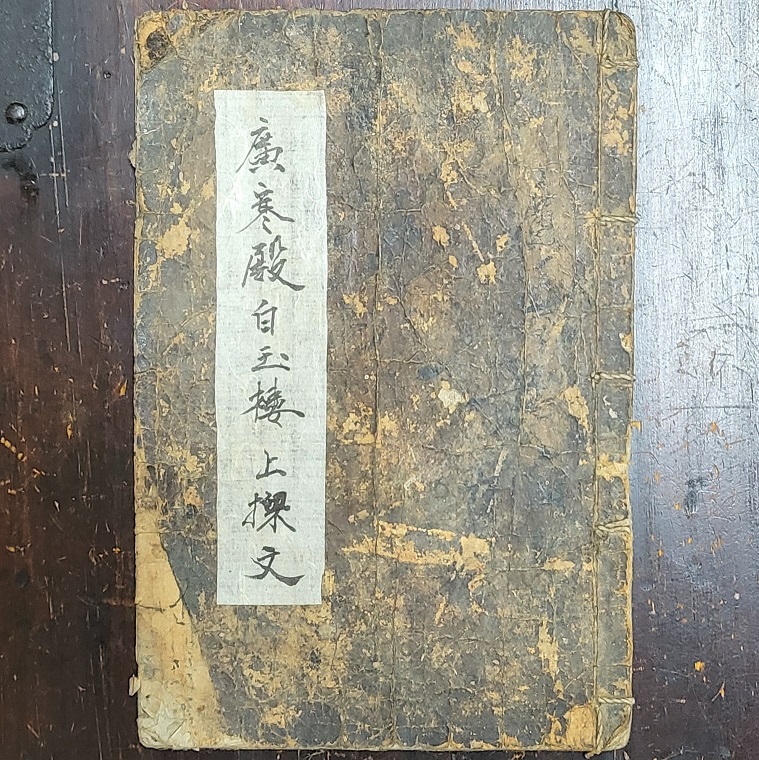 廣寒殿白玉樓上樑文